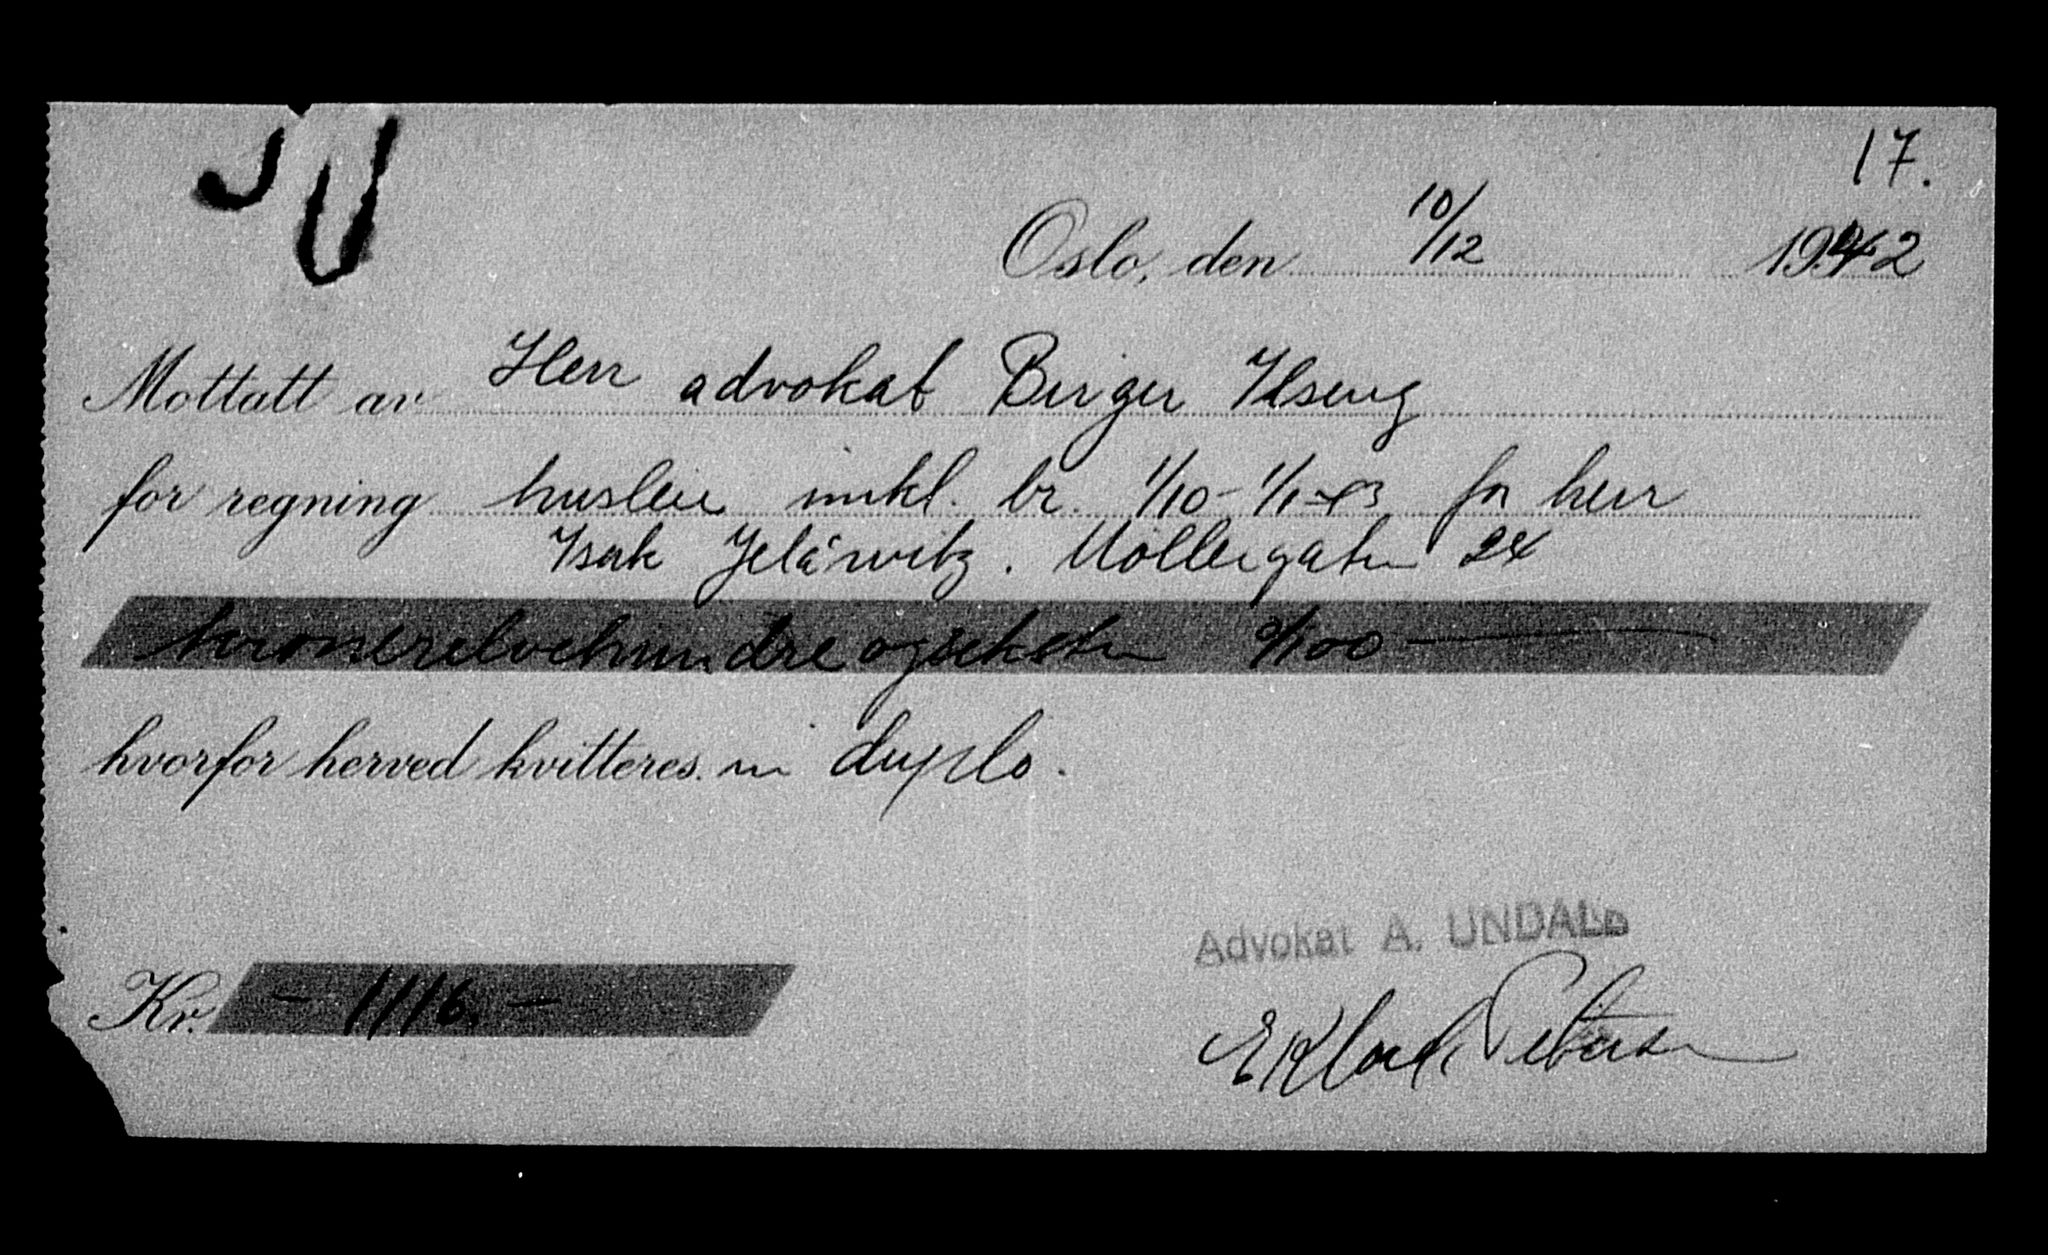 17.
Oslo, den 10/12 1942
Mottatt av Herr advokat Birger Ilseng
for regning husleie inkl. br. 1/10-1/1-43 for herr
Isak Jeláwitz. Möllergaten 24
kronerelvehundreogseksten 0/100
hvorfor herved kvitteres. in duplo.
Advokat A. UNDALL
Kr. - 1116. -